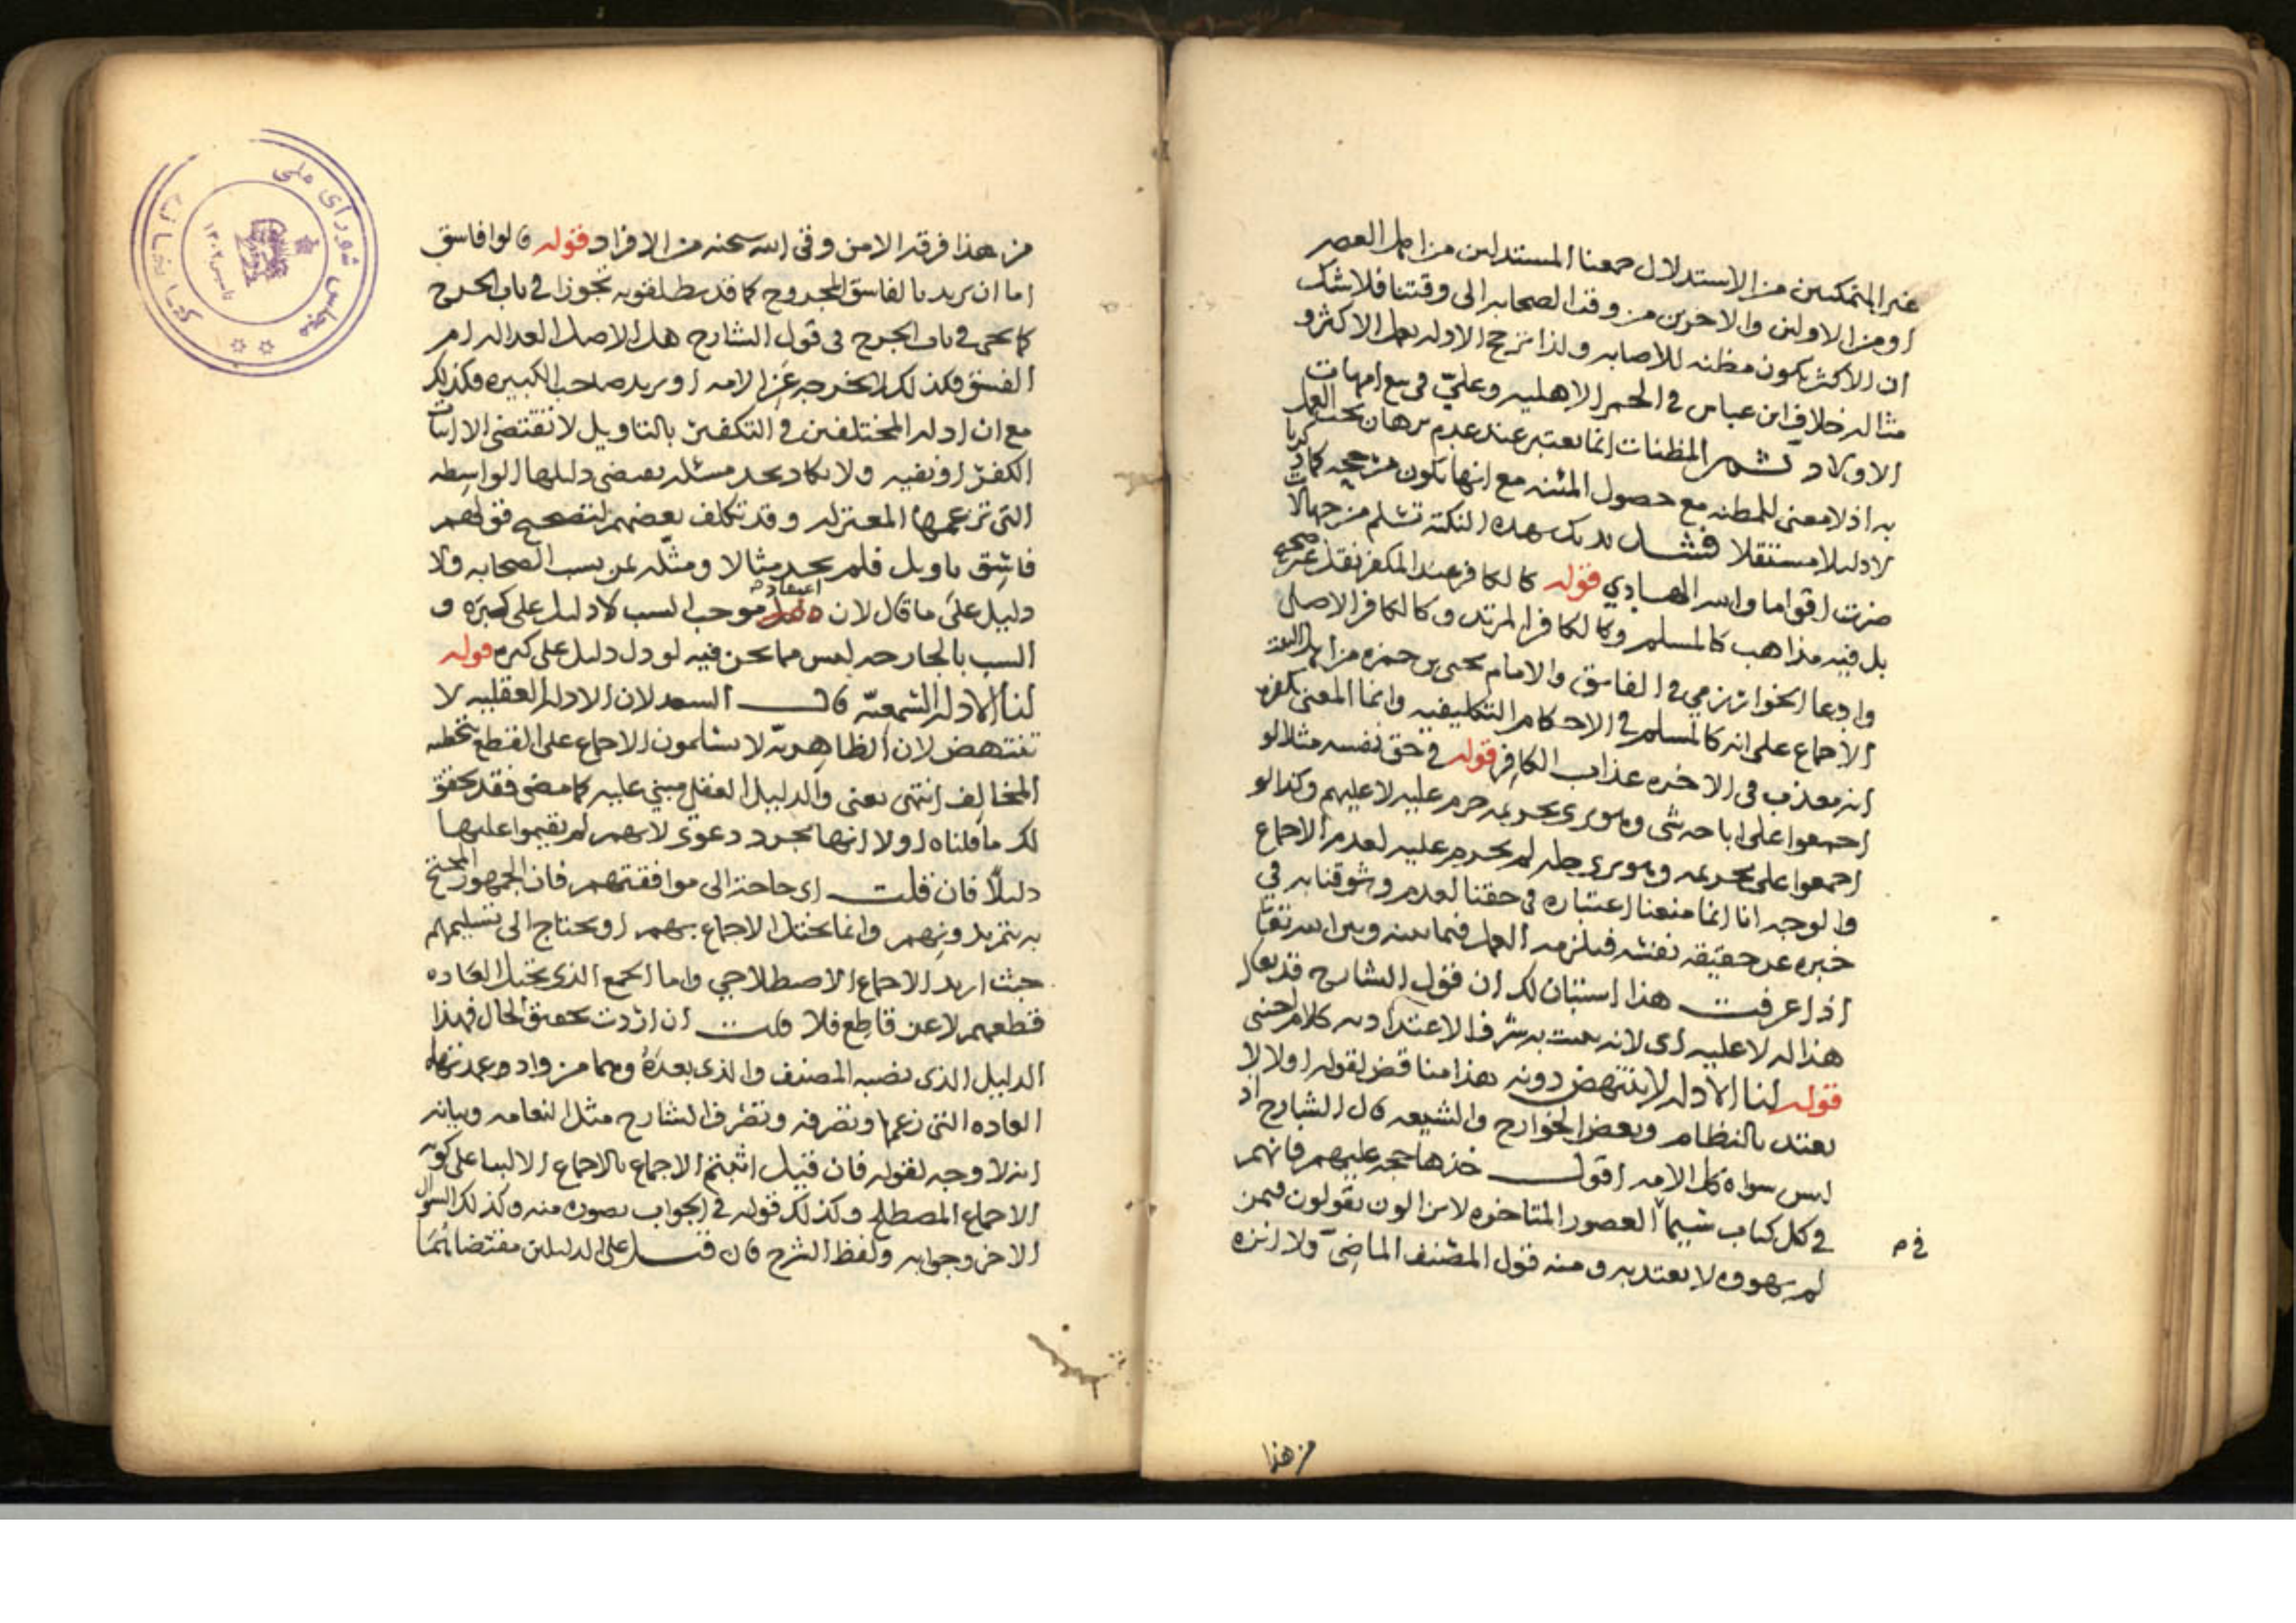 غير المتمكنين من الاستدلال جمعنا المستدلين من اهل العصر
او من الاولين والاخرين من وقت الصحابه الى وقتنا فلا شك
ان الاكثر يكون مظنه للاصابه ولذا ترجح الاوله بعمل الاكثر و
مثاله خلاف ابن عباس في الحمر الاهليه وعليّ في بيع امهات
الاولاد ثم المظنات انما يعتبر عند عدم برهان يجب العمل
به اذ لا معنى للمظنه مع حصول المئنه مع انها تكون مرجحه كما
لا دليلا مستقلا فشد يديك بهذه النكته تسلم من جهالات
ضرت اقواما والله الهادي قوله كالكافر عند المكفر نقل غير صحيح
بل فيه مذاهب كالمسلم وكالكافر المرتد وكالكافر الاصلي
وادعا الخوارزمي في الفاسق والامام يحيى بن حمزه من
الاجماع على انه كالمسلم في الاحكام التكليفيه وانما المعنى بكفره
انه معذب في الاخره عذاب الكافر قوله في حق نفسه مثلا لو
اجمعوا على اباحه شي وهو يرى تحريمه حرم عليه لا عليهم وكذا لو
اجمعوا على تحريمه وهو يرى حله لم يحرم عليه لعدم الاجماع
والوجه انا انما منعنا اعتباره في حقنا لعدم وثوقنا به في
خبره عن حقيقه نفسه فيلزمه العمل فيما بينه وبين الله تعالى
اذا عرفت هذا استبان لك ان قول الشارح قد يقال
هذا له لا عليه اى لانه كلام اجنبى
قوله لنا الادله لا ينتهض دونه هذا مناقض لقوله اولا لا
يعتد بالنظام وبعض الخوارج والشيعه قال الشارح اذ
ليس سواه كل الامه اقول خذها حجه عليهم فانهم
في كل كتاب سيما العصور المتاخره لا يزالون يقولون فيمن
في م
لم يهووه لا يعتد به ومنه قول المصنف الماضي ولا انزه
من هذا
من هذا فرقه الا من وقى الله سبحنه من الافراد قوله قالوا فاسق
اما ان يريد بالفاسق المجروح كما قد يطلقونه تجوزا في باب الجرح
كما يجى في باب الجرح فى قول الشارح هل الاصل العداله ام
الفسق فكذلك لا يخرجه عن الامه او يريد صاحب الكبيره فكذلك
مع ان ادله المختلفين في التكفير بالتاويل لا تقتضى الا اثبات
الكفر او نفيه ولا يكاد يجد مسئله يقتضى دليلها الواسطه
التى تزعمها المعتزله وقد تكلف بعضهم لتصحيح قولهم
فاسق تاويل فلم يجد مثالا ومثّله بمن يسب الصحابه ولا
دليل على ما قال لان اعتقاد موجب السب لا دليل على كبره و
السب بالجارحه ليس مما نحن فيه لو دل دليل على كبره قوله
لنا الادله السمعيّه قال السعد لان الادله العقليه لا
تنتهض لان الظاهريّه لا يسلمون الاجماع على القطع بتخطيه
المخالف انتهى يعنى والدليل العقلي مبني عليه كما مضى فقد تحقق
لك ما قلناه اولا انها مجرد دعوى لانهم لم يقيموا عليها
دليلاً فان قلت اى حاجه الى موافقتهم فان الجمهور المحتج
به يتم بدونهم وانما يختل الاجماع بهم او يحتاج الى تسليمهم
حيث اريد الاجماع الاصطلاحي واما الجمع الذى تحيل العاده
قطعهم لا عن قاطع فلا قلت ان اردت تحقيق الحال فهذا
الدليل الذى نصبه المصنف والذى بعده وهما من واد
العاده التى زعمها وتصرفه وتصرف الشارح مثل النعامه وبيانه
انه لا وجه لقوله فان قيل اثبتم الاجماع بالاجماع
الاجماع المصطلح وكذلك قوله في الجواب وكذلك السوال
الاخر وجوابه ولفظ الشرح فان قيل على الدليلين مقتضاهما
مجلس شوراى ملى
كتابخانه
تاسيس ١٣٠٢